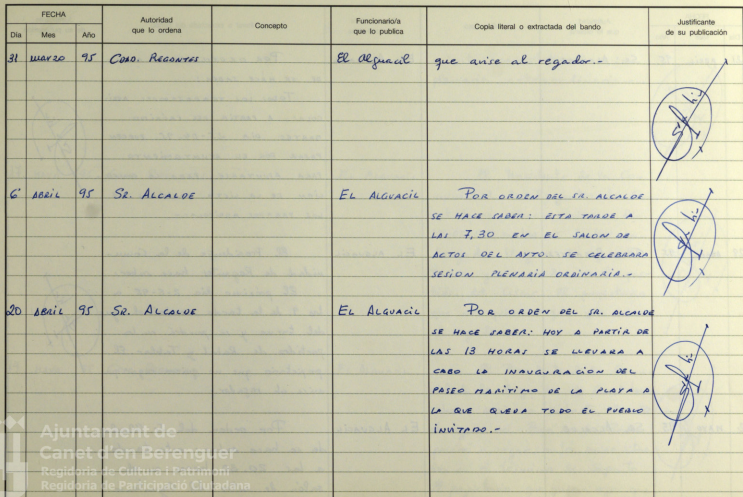 FECHA
Día Mes Año
Autoridad
que lo ordena
Concepto
Funcionario/a
que lo publica
Copia literal o extractada del bando
Justificante
de su publicación
31 marzo 95 COAD. REGANTES El Alguacil que avise al regador.-
6 ABRIL 95 SR. ALCALDE EL ALGUACIL POR ORDEN DEL SR. ALCALDE
SE HACE SABER: ESTA TARDE A
LAS 7,30 EN EL SALON DE
ACTOS DEL AYTO. SE CELEBRARA
SESION PLENARIA ORDINARIA.-
20 ABRIL 95 SR. ALCALDE EL ALGUACIL POR ORDEN DEL SR. ALCALDE
SE HACE SABER: HOY A PARTIR DE
LAS 13 HORAS SE LLEVARA A
CABO LA INAUGURACION DEL
PASEO MARITIMO DE LA PLAYA A
LA QUE QUEDA TODO EL PUEBLO
INVITADO.-
Ajuntament de
Canet d'en Berenguer
Regidoria de Cultura i Patrimoni
Regidoria de Participació Ciutadana